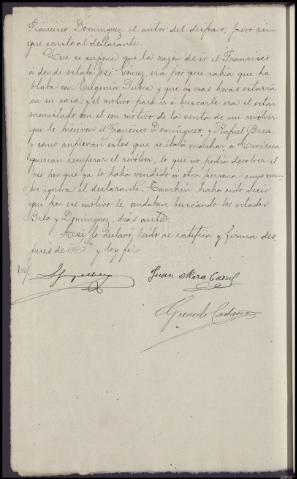 Francisco Dominguez el autor del disparo, pero sin
que excite al declarante.
Que se supone que la razon de ir el Francisco
a donde estaba José era por que sabia que ha
blaba con Eugenia y que a esas horas estaria
en su casa; y el motivo para ir a buscarle era el estar
enemistado con él con motivo de la venta de un revolver
que le hicieron el Francisco Dominguez y Rafael Brea
y como supieran estos que se iba a marchar a America
querian recuperar el revolver, lo que no podia devolver el
José por que ya lo habia vendido a otra persona cuyo nom
bre ignora el declarante. Tambien habia oido decir
que por ese motivo le andaban buscando los citados
Brea y Dominguez, dias antes.
Asi lo declaró, leido se ratifica y firma des
pues de Sª y doy fé.
Juan Mora
Gerardo